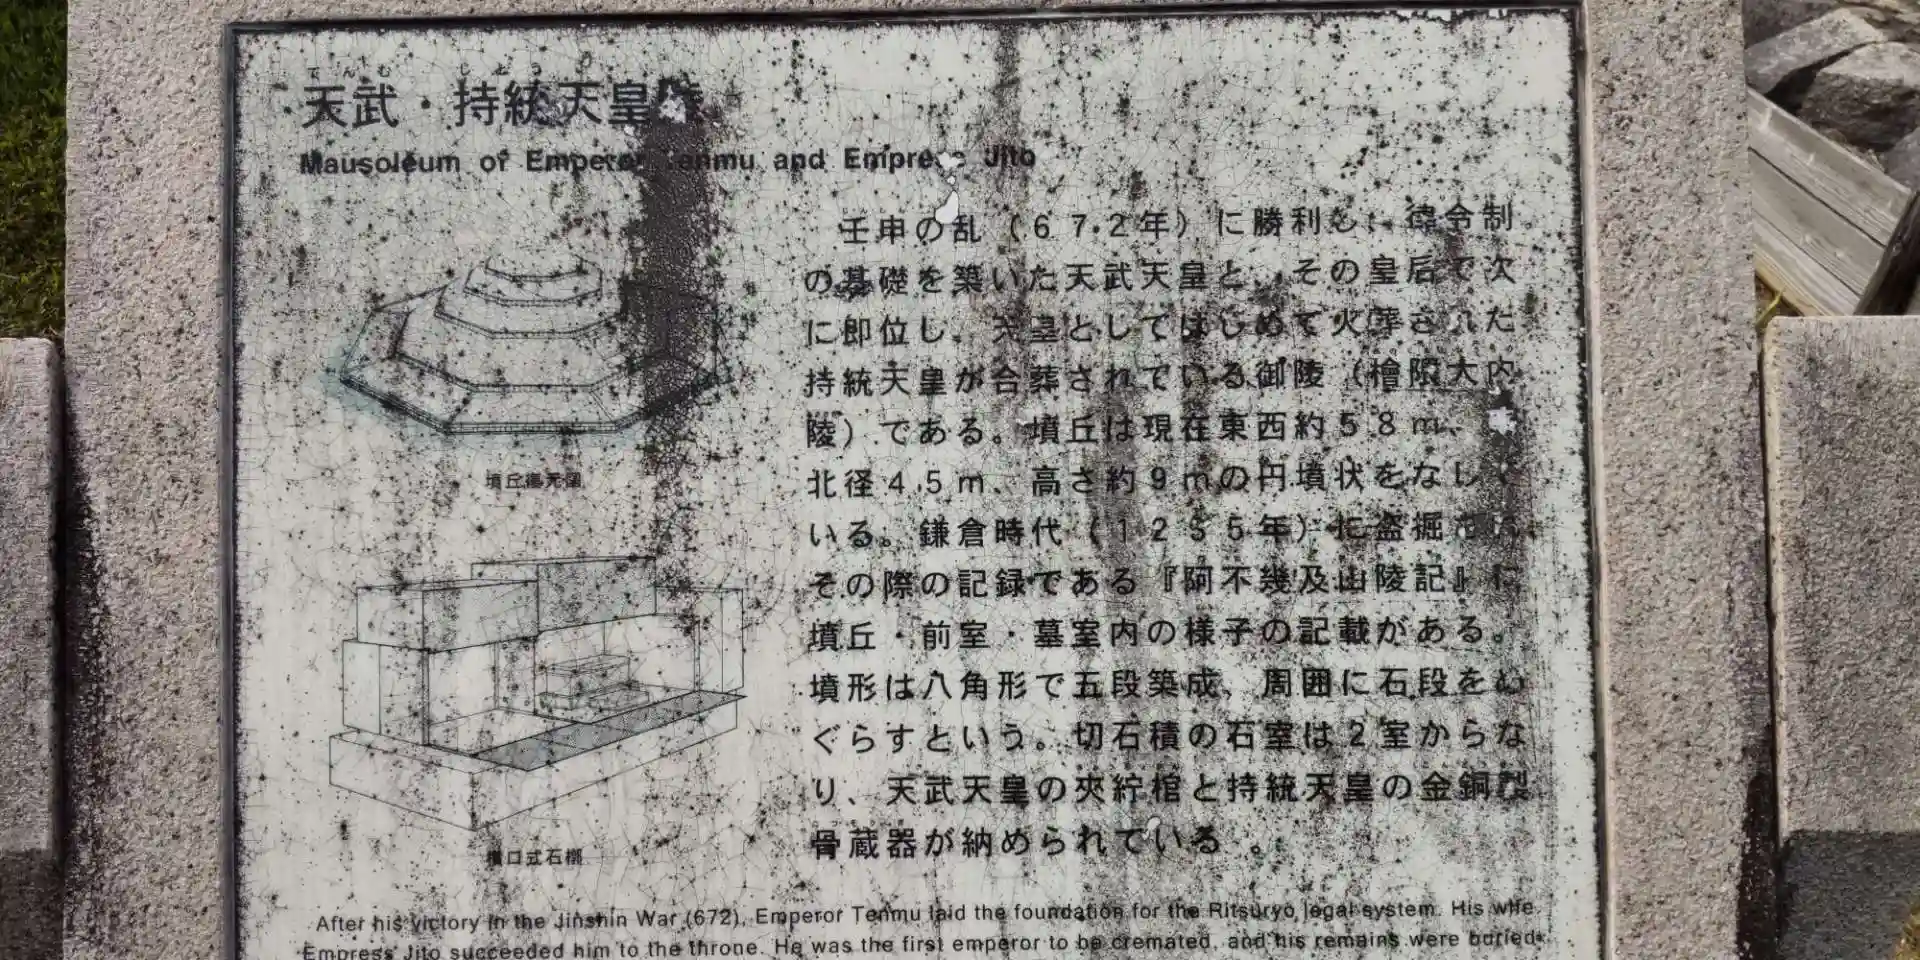 てんむ じとう
天武・持統天皇
Mausoleum of Emperor Tenmu and Empress Jito
壬申の乱（６７２年）に勝利し、律令制
の基礎を築いた天武天皇と、その皇后で次
に即位し、天皇としてはじめて火葬された
持統天皇が合葬されている御陵（檜隈大内
陵）である。墳丘は現在東西約５８ｍ、
北径４５ｍ、高さ約９ｍの円墳状をなして
いる。鎌倉時代（１２３５年）に盗掘
その際の記録である『阿不幾及山陵記』に
墳丘・前室・墓室内の様子の記載がある。
墳形は八角形で五段築成、周囲に石段をめ
ぐらすという。切石積の石室は２室からな
り、天武天皇の夾紵棺と持統天皇の金銅製
骨蔵器が納められている。
墳丘復元図
横口式石槨
After his victory in the Jinshin War (672), Emperor Tenmu laid the foundation for the Ritsuryo legal system. His wife
Empress Jito succeeded him to the throne. He was the first emperor to be cremated, and his remains were buried